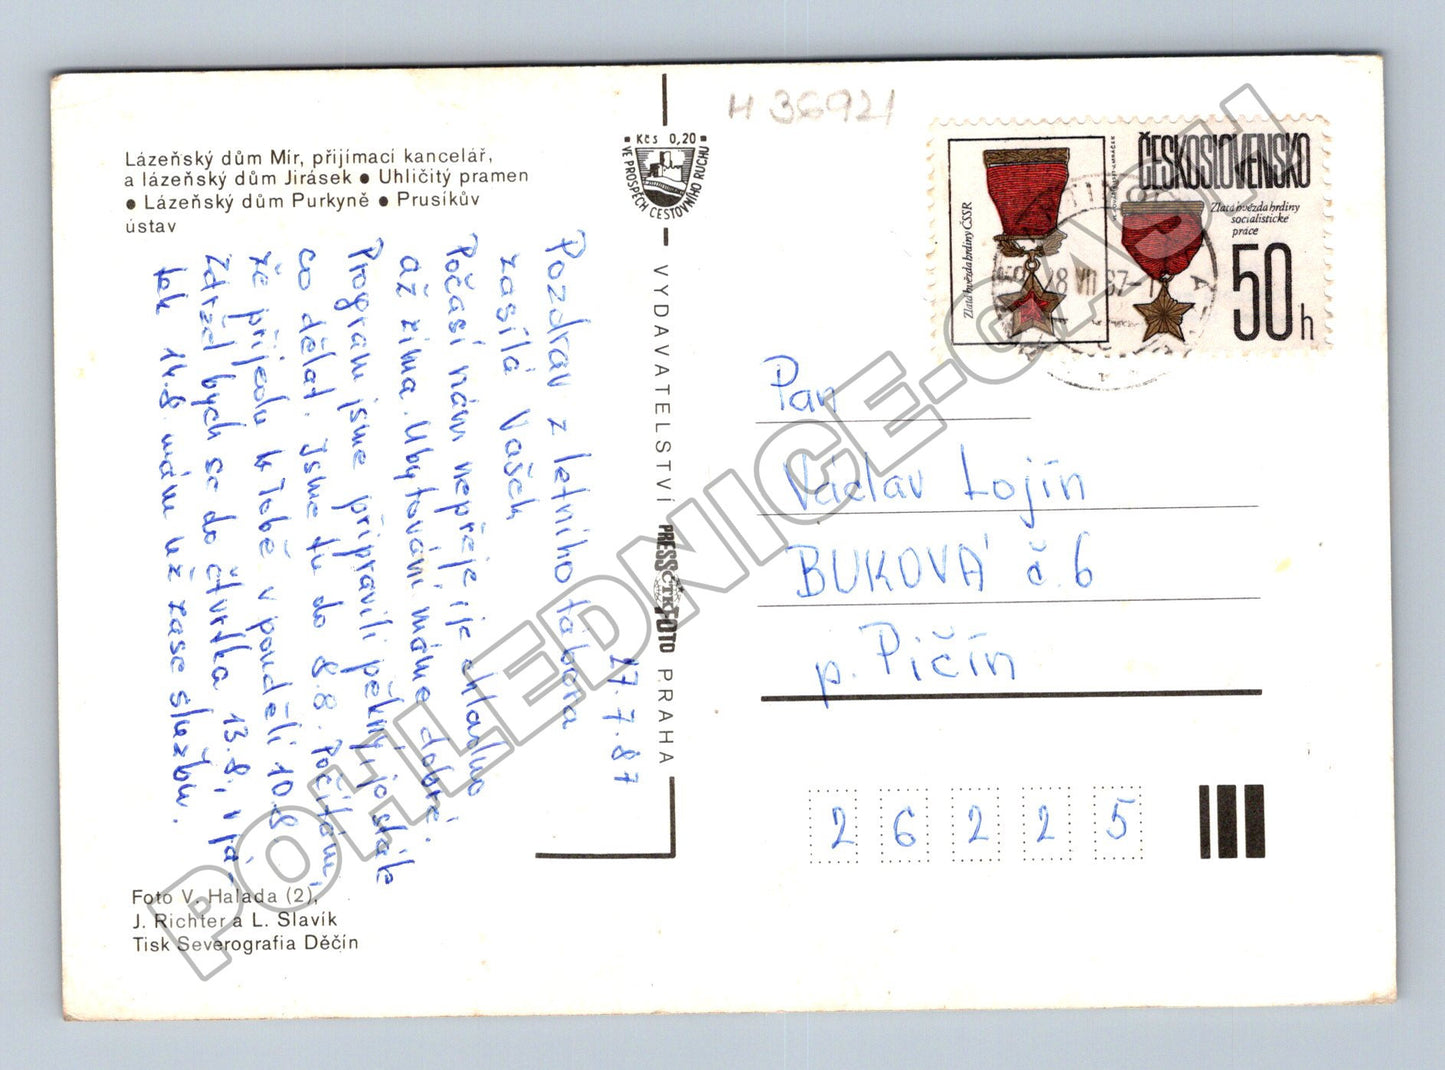 H 36921
Lázeňský dům Mír, přijímací kancelář,
a lázeňský dům Jirásek ● Uhličitý pramen
● Lázeňský dům Purkyně ● Prusíkův
ústav
27.7.87
Pozdrav z letního tábora
zasílá Vašek
Počasí nám nepřeje, je chladno
až zima. Ubytování máme dobré.
Program jsme připravili pěkný, jo stále
co dělat. Jsme tu do 8.8. Počítám,
že přijedu k Tobě v pondělí 10.8
Zdržel bych se do čtvrtka 13.8,
tak 14.8. mám už zase službu.
Foto V. Halada (2),
J. Richter a L. Slavík
Tisk Severografia Děčín
Kčs 0,20
VE PROSPĚCH CESTOVNÍHO RUCHU
VYDAVATELSTVÍ PRESSFOTO PRAHA
ČTK
ČESKOSLOVENSKO
Zlatá hvězda hrdiny ČSSR
Zlatá hvězda hrdiny
socialistické
práce
50h
Pan
Václav Lojín
BUKOVÁ č. 6
p. Pičín
26225
POHLEDNICE-CASH